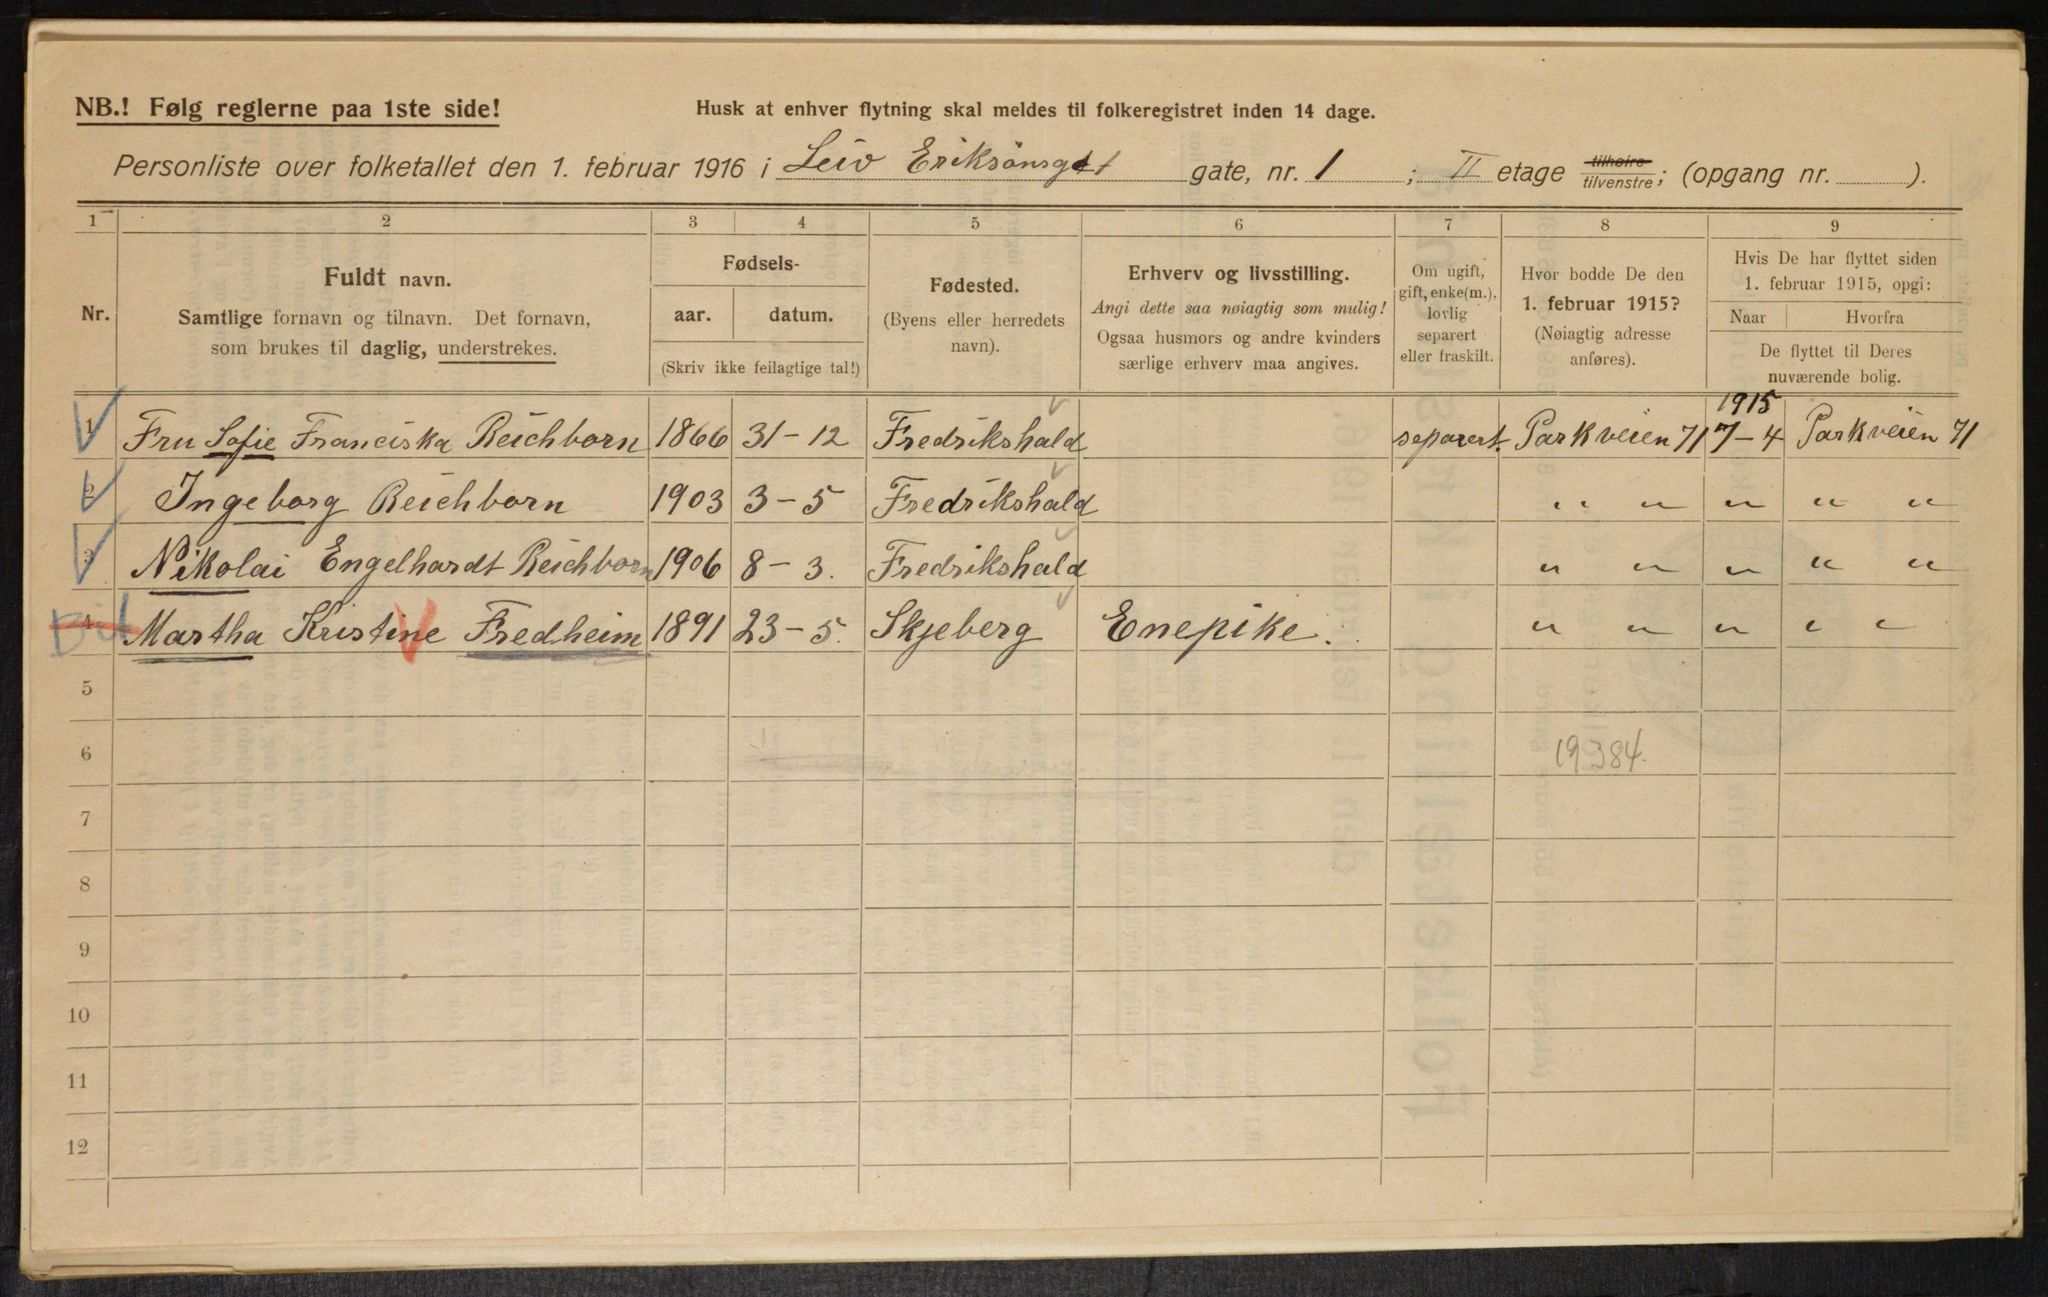 NB.! Følg reglerne paa 1ste side!
Husk at enhver flytning skal meldes til folkeregistret inden 14 dage.
Personliste over folketallet den 1. februar 1916 i Leiv Eriksönsgt 1 gate, nr. 1 ; II etage tilhøire tilvenstre; (opgang nr. ).
1 2 3 4 5 6 7 8 9
Nr.
Fuldt navn.
Samtlige fornavn og tilnavn. Det fornavn,
som brukes til daglig, understrekes.
Fødsels-
aar. datum.
(Skriv ikke feilagtige tal!)
Fødested.
(Byens eller herredets
navn).
Erhverv og livsstilling.
Angi dette saa nøiagtig som mulig!
Ogsaa husmors og andre kvinders
særlige erhverv maa angives.
Om ugift,
gift, enke(m.),
lovlig
separert
eller fraskilt.
Hvor bodde De den
1. februar 1915?
(Nøiagtig adresse
anføres).
Hvis De har flyttet siden
1. februar 1915, opgi:
Naar Hvorfra
De flyttet til Deres
nuværende bolig.
1915
1 Fru Sofie Franciska Reichborn 1866 31-12 Fredrikshald separert. Parkveien 71 7-4 Parkveien 71
2 Ingeborg Reichborn 1903 3-5 Fredrikshald " " " " "
3 Nikolai Engelhardt Reichborn 1906 8-3. Fredrikshald " " " " "
4 Martha Kristine Fredheim 1891 23-5. Skjeberg Enepike. " " " " "
5
6 19384.
7
8
9
10
11
12